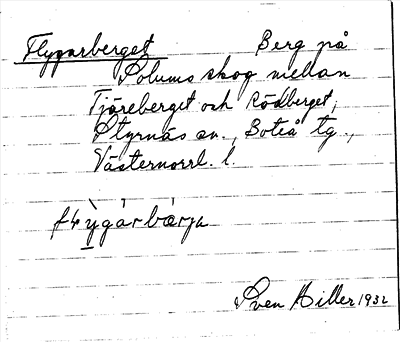 Flygarberget Berg på
Solums skog mellan
Tjäreberget och Rödberget,
Styrnäs sn., Boteå tg.,
Västernorrl. l.
Sven Hiller 1932